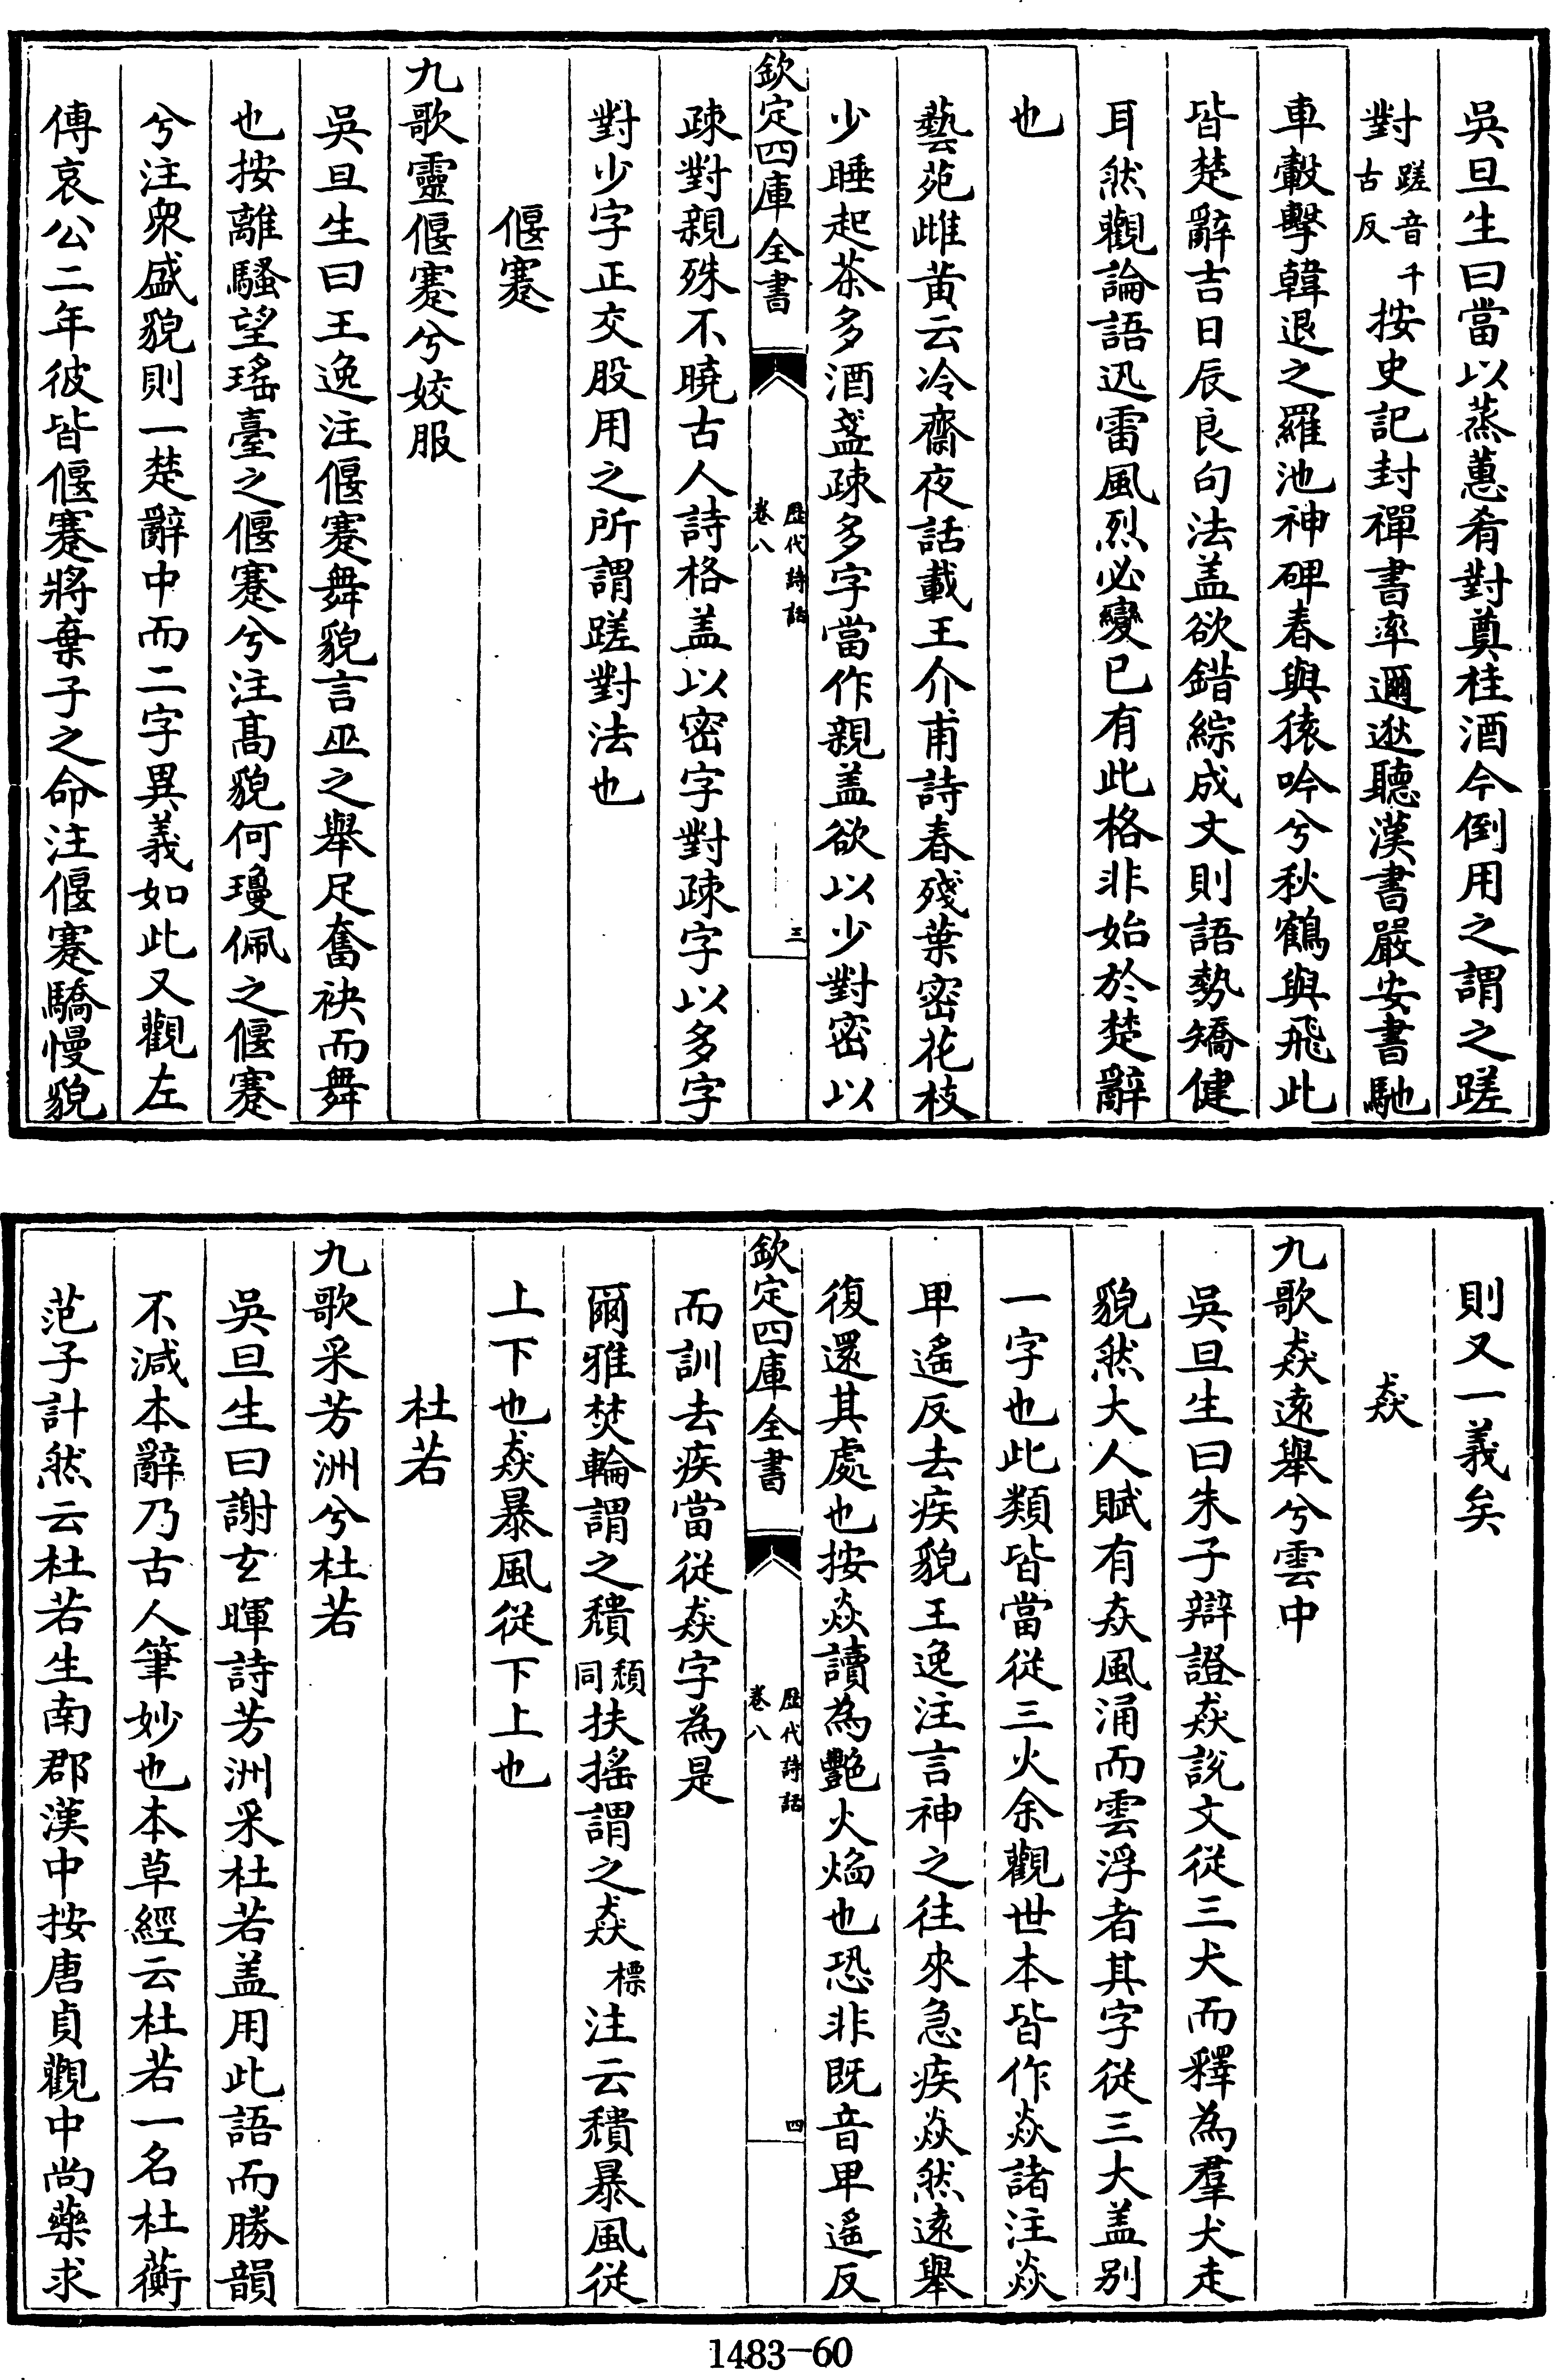 吳旦生曰當以蒸蕙肴對奠桂酒今倒用之謂之蹉
對蹉音千古反按史記封禪書率邇逖聽漢書嚴安書馳
車轂擊韓退之羅池神碑春與猿吟兮秋鶴與飛此
皆楚辭吉日辰良句法盖欲錯綜成文則語勢矯健
耳然觀論語迅雷風烈必變已有此格非始於楚辭
也
藝苑雌黃云冷齋夜話載王介甫詩春殘葉密花枝
少睡起茶多酒盞疎多字當作親盖欲以少對密以
欽定四庫全書
歴代詩話
卷八
三
疎對親殊不曉古人詩格盖以密字對疎字以多字
對少字正交股用之所謂蹉對法也
偃蹇
九歌靈偃蹇兮姣服
吳旦生曰王逸注偃蹇舞貌言巫之舉足奮袂而舞
也按離騷望瑤臺之偃蹇兮注髙貌何瓊佩之偃蹇
兮注衆盛貌則一楚辭中而二字異義如此又觀左
傳哀公二年彼皆偃蹇將棄子之命注偃蹇驕慢貌
則又一義矣
猋
九歌猋遠舉兮雲中
吳旦生曰朱子辯證猋說文從三犬而釋為羣犬走
貌然大人賦有猋風涌而雲浮者其字從三大盖别
一字也此類皆當從三火余觀世本皆作焱諸注焱
甲遙反去疾貌王逸注言神之往來急疾焱然遠舉
復還其處也按焱讀為艷火焰也恐非既音甲遙反
欽定四庫全書
歴代詩話
卷八
四
而訓去疾當從猋字為是
爾雅焚輪謂之穨頽同扶摇謂之猋標注云穨暴風從
上下也猋暴風從下上也
杜若
九歌采芳洲兮杜若
吳旦生曰謝玄暉詩芳洲采杜若盖用此語而勝韻
不減本辭乃古人筆妙也本草經云杜若一名杜蘅
范子計然云杜若生南郡漢中按唐貞觀中尚藥求
1483-60